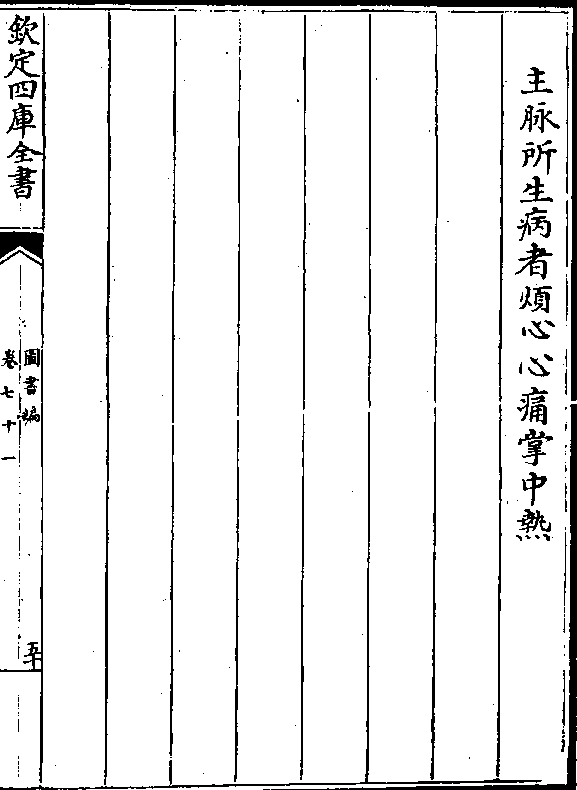 主脉所生病者煩心心痛掌中熱
欽定四庫全書
圖書編
卷七十一
五十